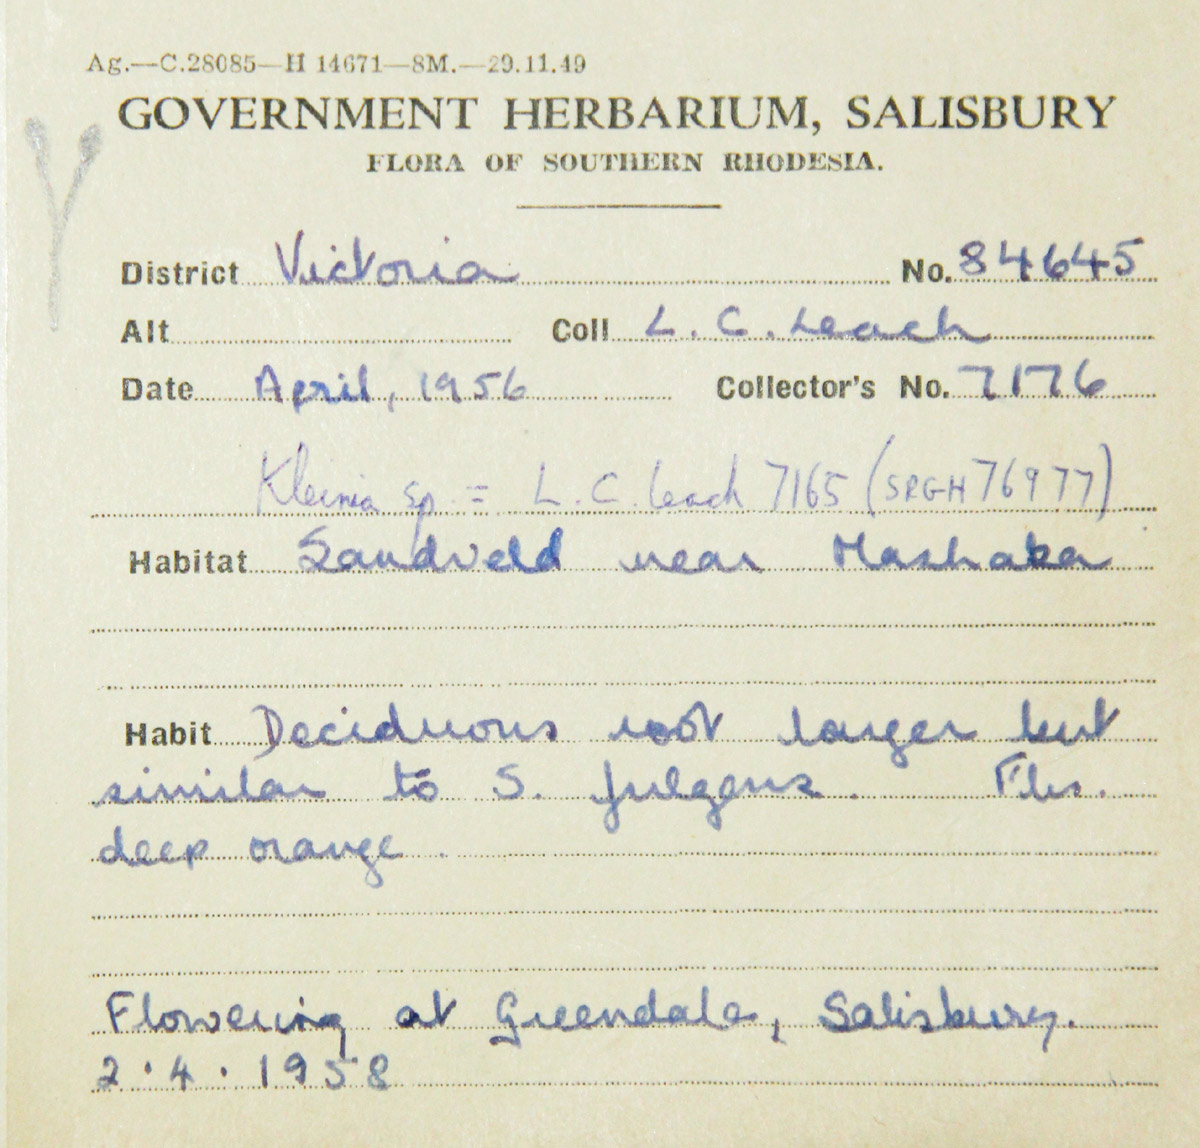 Ag.—C.28085—H 14671—8M.—29.11.49
GOVERNMENT HERBARIUM, SALISBURY
FLORA OF SOUTHERN RHODESIA.
District Victoria No. 84645
Alt Coll L. C. Leach
Date April, 1956 Collector's No. 7176
Kleinia sp. = L. C. Leach 7165 (SRGH 76977)
Habitat Sandveld near Mashaba
Habit Deciduous root larger but
similar to S. fulgens. Fls.
deep orange.
Flowering at Greendale, Salisbury.
2.4.1958